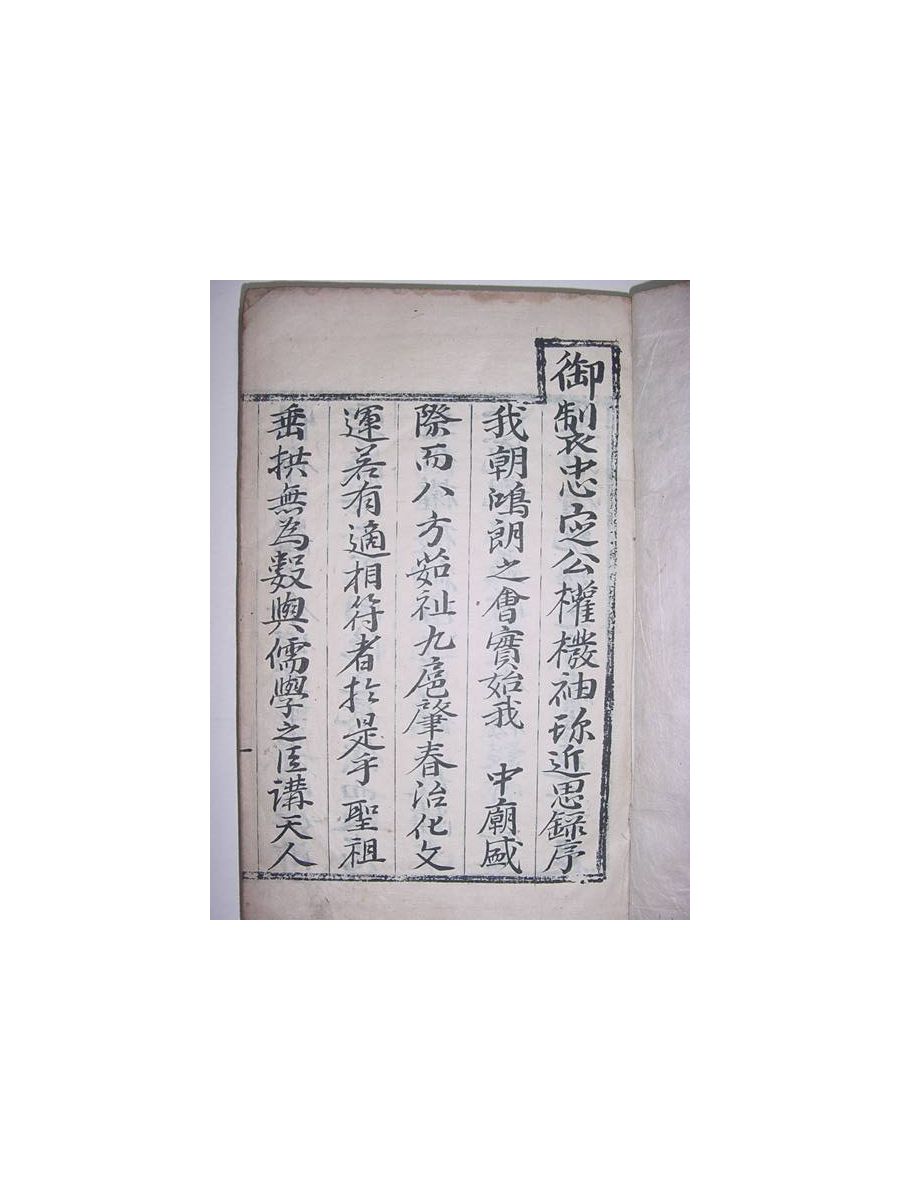 御製忠定公權橃袖珍近思錄序
我朝鴻朗之會實始我 中廟盛
際而八方茹祉九扈肇春治化文
運若有適相符者於是乎 聖祖
垂拱無為數與儒學之臣講天人